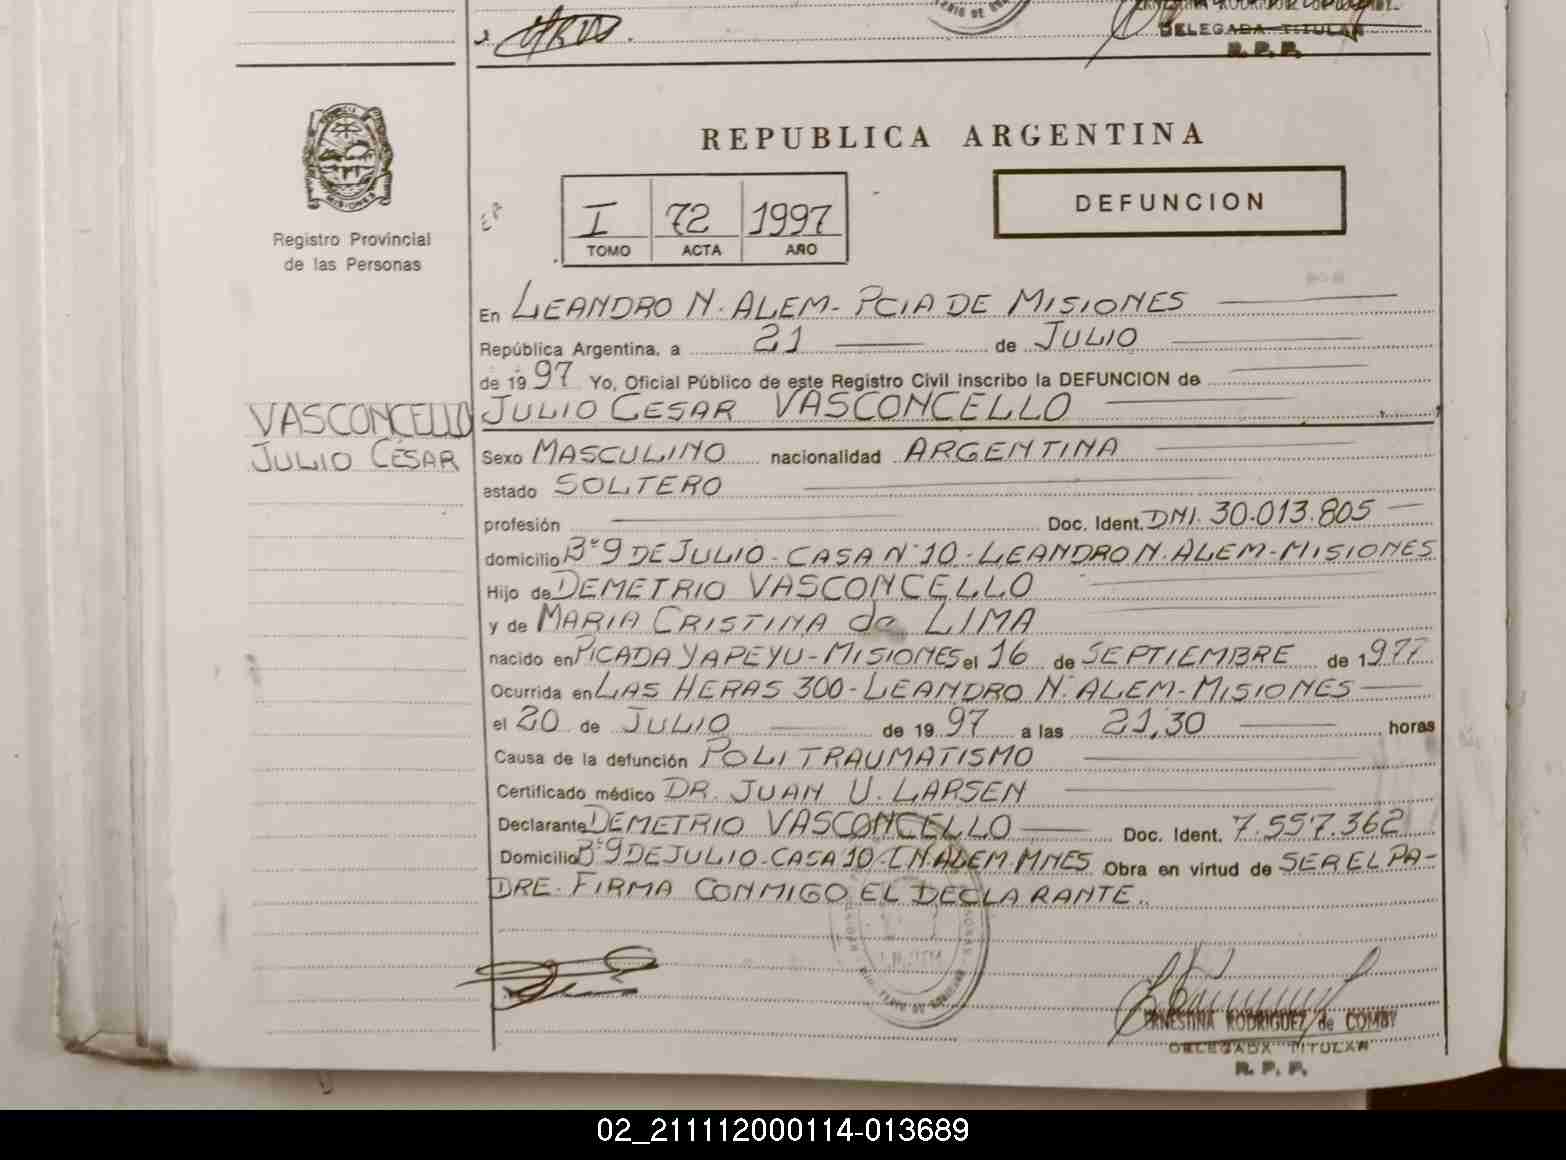 DELEGADA TITULAR
R. P. P.
Registro Provincial
de las Personas
REPUBLICA ARGENTINA
I 72 1997
TOMO ACTA AÑO
DEFUNCION
En LEANDRO N. ALEM - PCIA DE MISIONES
República Argentina, a 21 de JULIO
de 1997 Yo, Oficial Público de este Registro Civil inscribo la DEFUNCION de
VASCONCELLO
JULIO CESAR
JULIO CESAR VASCONCELLO
Sexo MASCULINO nacionalidad ARGENTINA
estado SOLTERO
profesión Doc. Ident. DNI. 30.013.805
domicilio Bº 9 DE JULIO - CASA Nº 10 - LEANDRO N. ALEM - MISIONES
Hijo de DEMETRIO VASCONCELLO
y de MARIA CRISTINA de LIMA
nacido en PICADA YAPEYU - MISIONES el 16 de SEPTIEMBRE de 1977
Ocurrida en LAS HERAS 300 - LEANDRO N. ALEM - MISIONES
el 20 de JULIO de 1997 a las 21,30 horas
Causa de la defunción POLITRAUMATISMO
Certificado médico DR. JUAN U. LARSEN
Declarante DEMETRIO VASCONCELLO Doc. Ident. 7.557.362
Domicilio Bº 9 DE JULIO - CASA 10 - L.N. ALEM. MNES Obra en virtud de SER EL PA-
DRE. FIRMA CONMIGO EL DECLARANTE.
ERNESTINA RODRIGUEZ de COMBY
DELEGADA TITULAR
R. P. P.
02_211112000114-013689